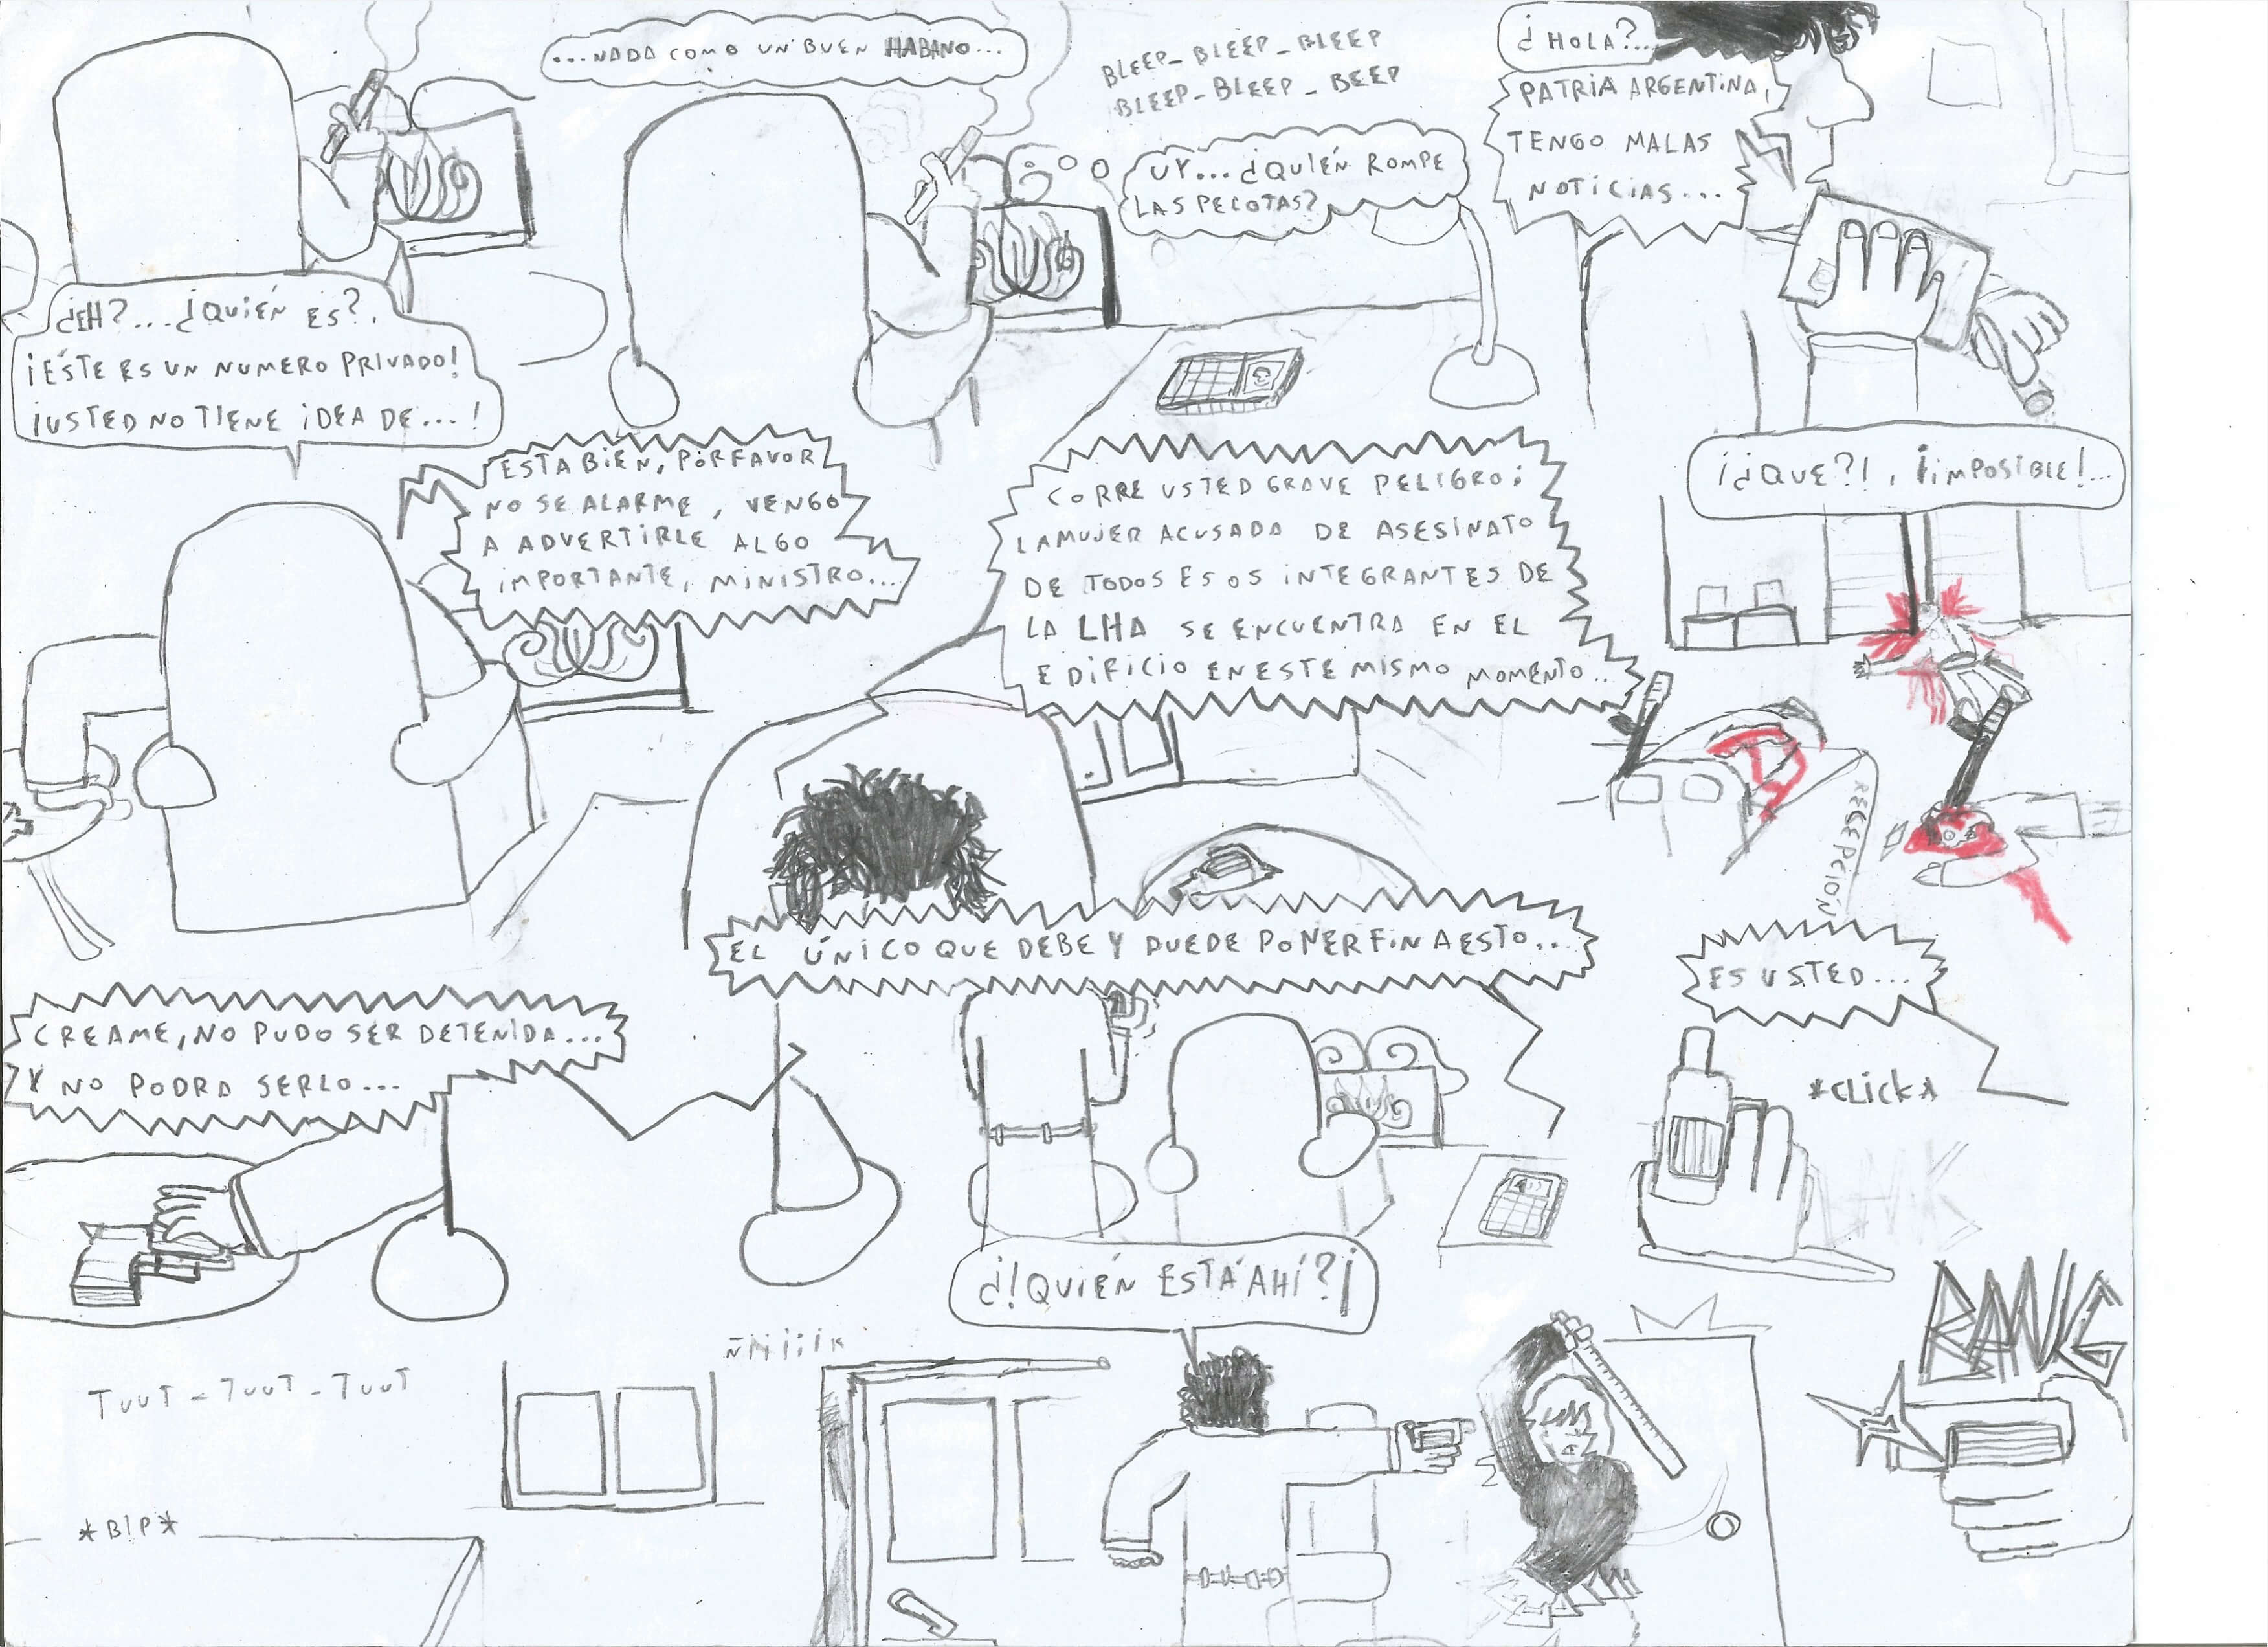 ...NADA COMO UN BUEN HABANO...
BLEEP-BLEEP-BLEEP
BLEEP-BLEEP-BEEP
UY... ¿QUIÉN ROMPE
LAS PELOTAS?
¿HOLA?...
PATRIA ARGENTINA,
TENGO MALAS
NOTICIAS...
¿EH?...¿QUIÉN ES?,
¡ÉSTE ES UN NUMERO PRIVADO!
¡USTED NO TIENE IDEA DE...!
ESTA BIEN, POR FAVOR
NO SE ALARME, VENGO
A ADVERTIRLE ALGO
IMPORTANTE, MINISTRO...
CORRE USTED GRAVE PELIGRO;
LA MUJER ACUSADA DE ASESINATO
DE TODOS ESOS INTEGRANTES DE
LA LHA SE ENCUENTRA EN EL
EDIFICIO EN ESTE MISMO MOMENTO...
¡¿QUE?!, ¡IMPOSIBLE!...
RECEPCIÓN
CREAME, NO PUDO SER DETENIDA...
Y NO PODRA SERLO...
EL ÚNICO QUE DEBE Y PUEDE PONER FIN A ESTO...
ES USTED...
*CLICK*
TUUT-TUUT-TUUT
*BIP*
ÑIIIIK
¿!QUIÉN ESTÁ AHÍ?¡
BANG